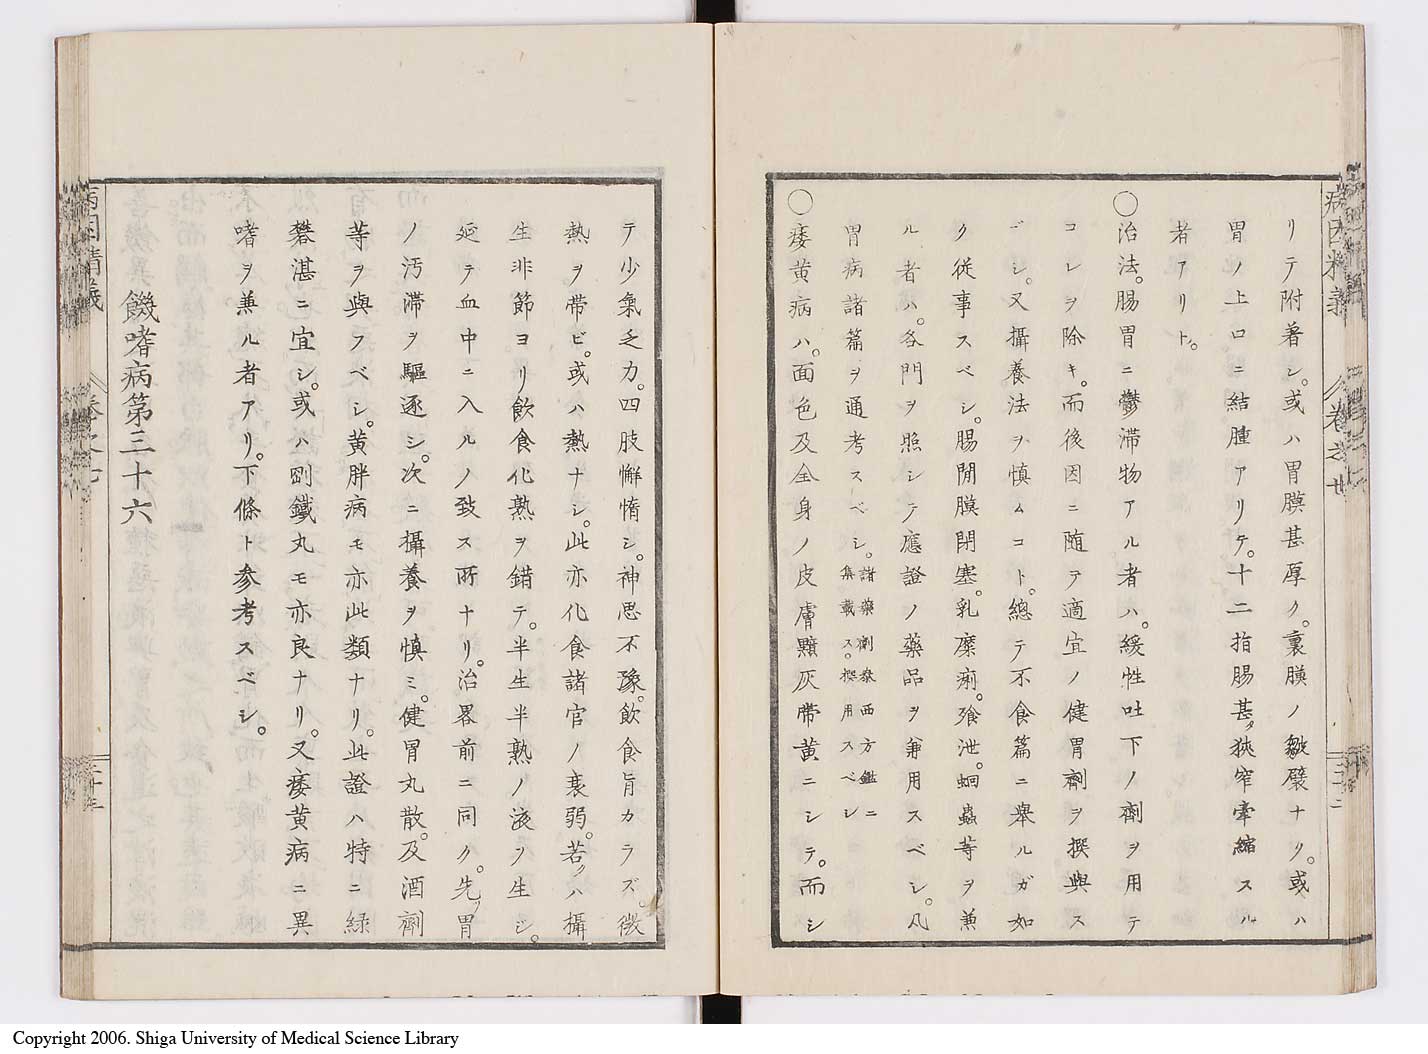 病因精義
卷之七
リテ附著シ。或ハ胃膜甚厚ク。裏膜ノ皺襞ナク。或ハ
胃ノ上口ニ結腫アリテ。十二指腸甚ダ狹窄牽縮スル
者アリト。
○治法。腸胃ニ鬱滯物アル者ハ。緩性吐下ノ劑ヲ用テ
コレヲ除キ。而後因ニ随テ適宜ノ健胃劑ヲ撰與ス
ベシ。又攝養法ヲ慎ムコト。總テ不食篇ニ舉ルガ如
ク從事スベシ。腸間膜閉塞。乳糜痢。飱泄。蛔蟲等ヲ兼
ル者ハ。各門ヲ照シテ應證ノ藥品ヲ兼用スベシ。凡
胃病諸篇ヲ通考スベシ。諸藥劑泰西方鑑ニ
集載ス。撰用スベシ
○痿黄病ハ。面色及全身ノ皮膚顯灰帶黄ニシテ。而シ
テ少氣乏力。四肢懈惰シ。神思不豫。飲食旨カラズ。微
熱ヲ帶ビ。或ハ熱ナシ。此亦化食諸官ノ衰弱。若クハ攝
生非節ヨリ飲食化熟ヲ錯テ。半生半熟ノ液ヲ生シ。
延テ血中ニ入ルノ致ス所ナリ。治畧前ニ同ク。先ヅ胃
ノ汚滯ヲ驅逐シ。次ニ攝養ヲ慎ミ。健胃丸散。及酒劑
等ヲ與フベシ。黄胖病モ亦此類ナリ。此證ハ特ニ綠
礬湛ニ宜シ。或ハ劉鐵丸モ亦良ナリ。又痿黄病ニ異
嗜ヲ兼ル者アリ。下條ト参考スベシ。
饑嗜病第三十六
病因精義
卷之七
Copyright 2006. Shiga University of Medical Science Library